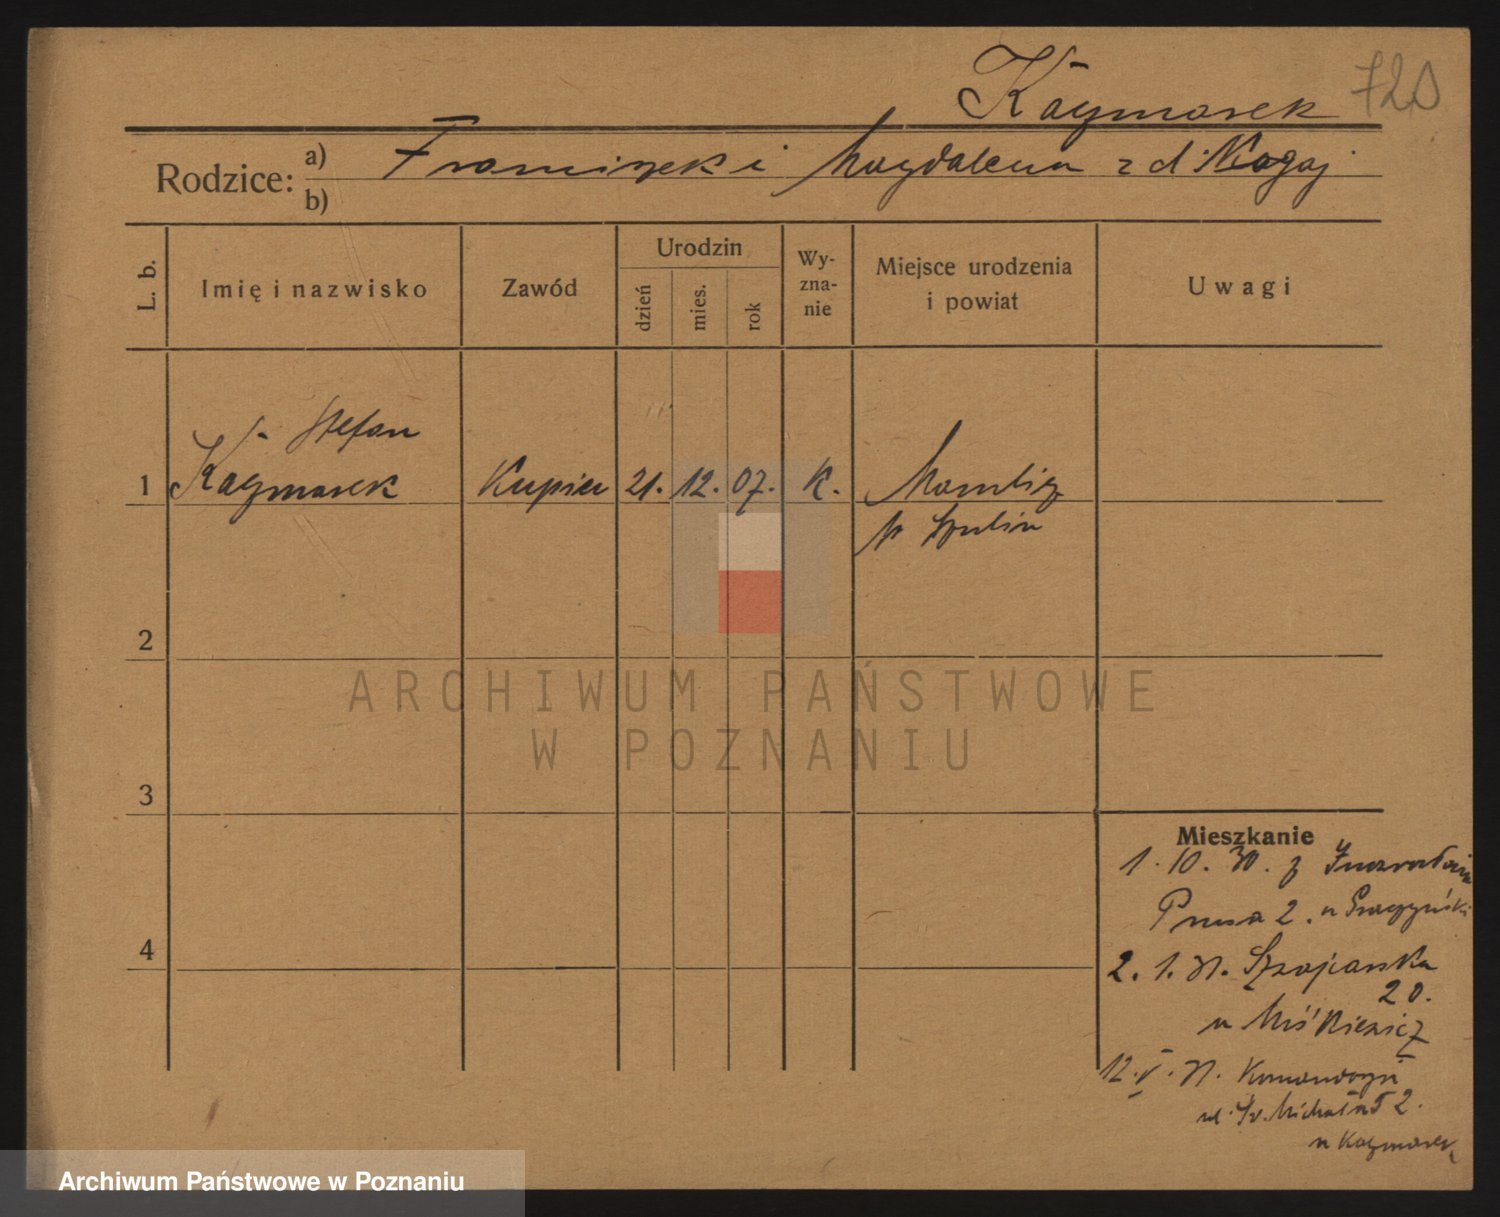 Kaczmarek 720
Rodzice: a) Franciszek i Magdalena z d. Nogaj
b)
L. b. Imię i nazwisko Zawód Urodzin dzień mies. rok Wy-zna-nie Miejsce urodzenia i powiat Uwagi
Stefan
1 Kaczmarek Kupiec 21. 12. 07. K. Mamlicz
p. Szubin
2
ARCHIWUM PAŃSTWOWE
W POZNANIU
3
Mieszkanie
1. 10. 30. z Inowrocławia
Prusa 2. u
4
2. 1. 31.
20.
u Miśkiewicz
12. V. 31.
ul. Św. Michała 2.
u Kaczmarek
Archiwum Państwowe w Poznaniu